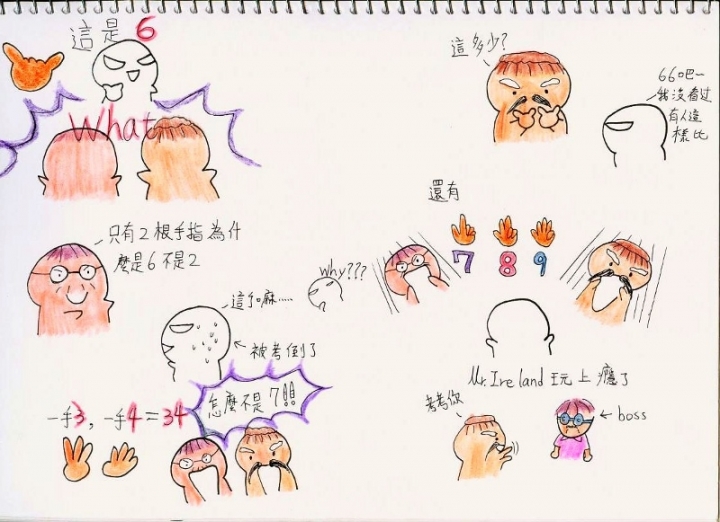 這是6
What
只有2根手指為什
麼是6不是2
這個嘛.....
被考倒了
一手3,一手4=34
怎麼不是7!!
這多少?
66吧~
我沒看过
有人這
樣比
還有
7 8 9
why???
Mr.Ireland 玩上癮了
考考你
boss